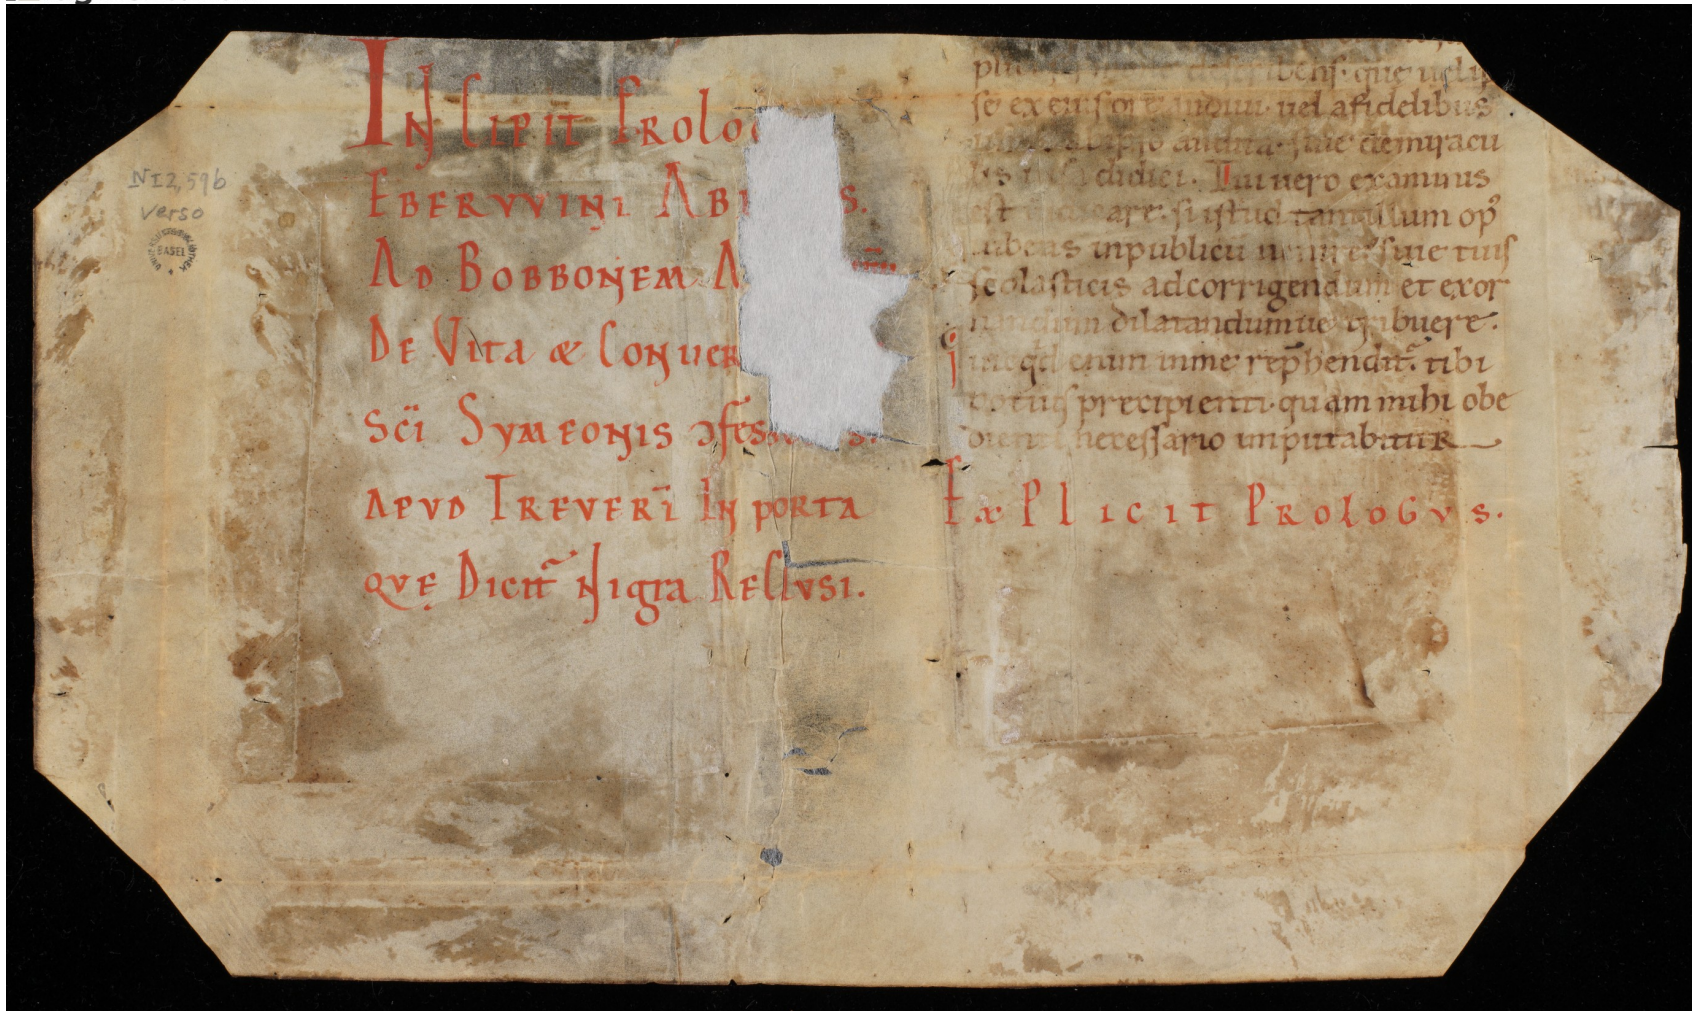 NI2,59b
verso
BASEL
InCipit Prolo
Eberwini Ab s.
Ad Bobbonem A
De Vita & Conuer
Sc̄i Symeonis ɔfess s.
apud Treveri̅ In porta
quę Dicit᷑ Nigra Reclusi.
describens. que uel ip
se ex eius ore audiui. uel a fidelibus
audita. siue de miracu
lis didici. Tui uero examinis
est iudicare. si istud tantillum op᷒
iubeas in publicū uenire. siue tuis
scolasticis ad corrigendum et exor
nandum dilatandumue tribuere.
enim in me rep̄hendit᷑. tibi
potius precipienti. quam mihi obe
dienti necessario imputabitur
Explicit Prologus.